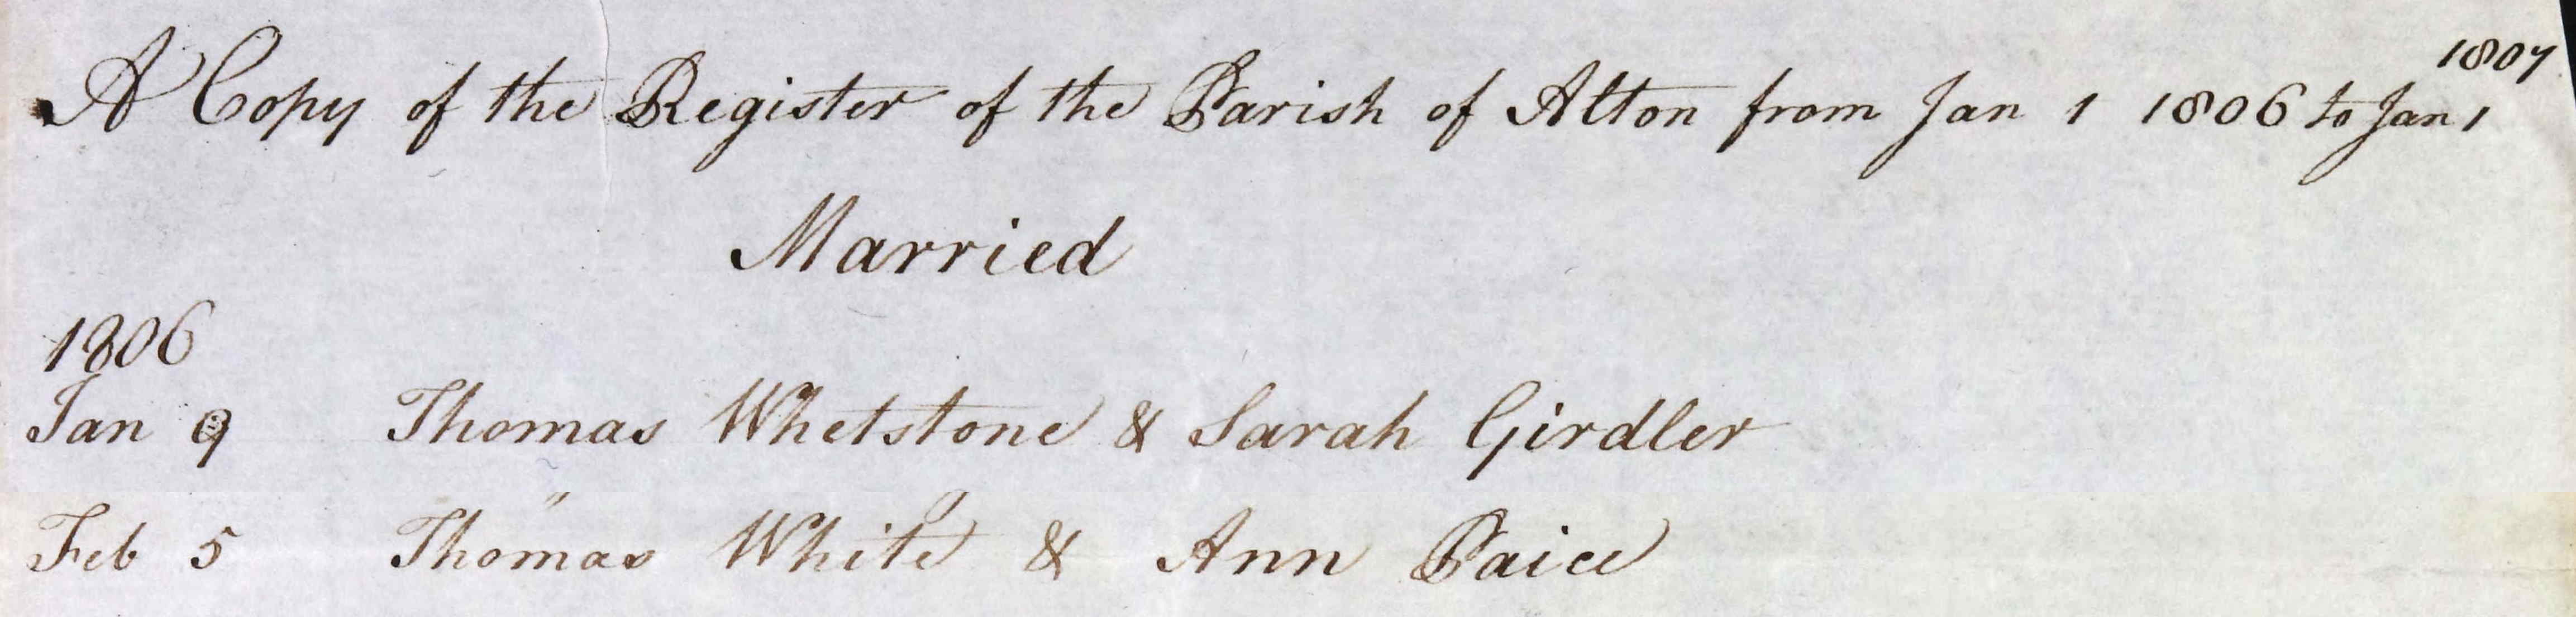 A Copy of the Register of the Parish of Alton from Jan 1 1806 to Jan 1 1807
Married
1806
Jan 9 Thomas Whetstone & Sarah Girdler
Feb 5 Thomas White & Ann Paice